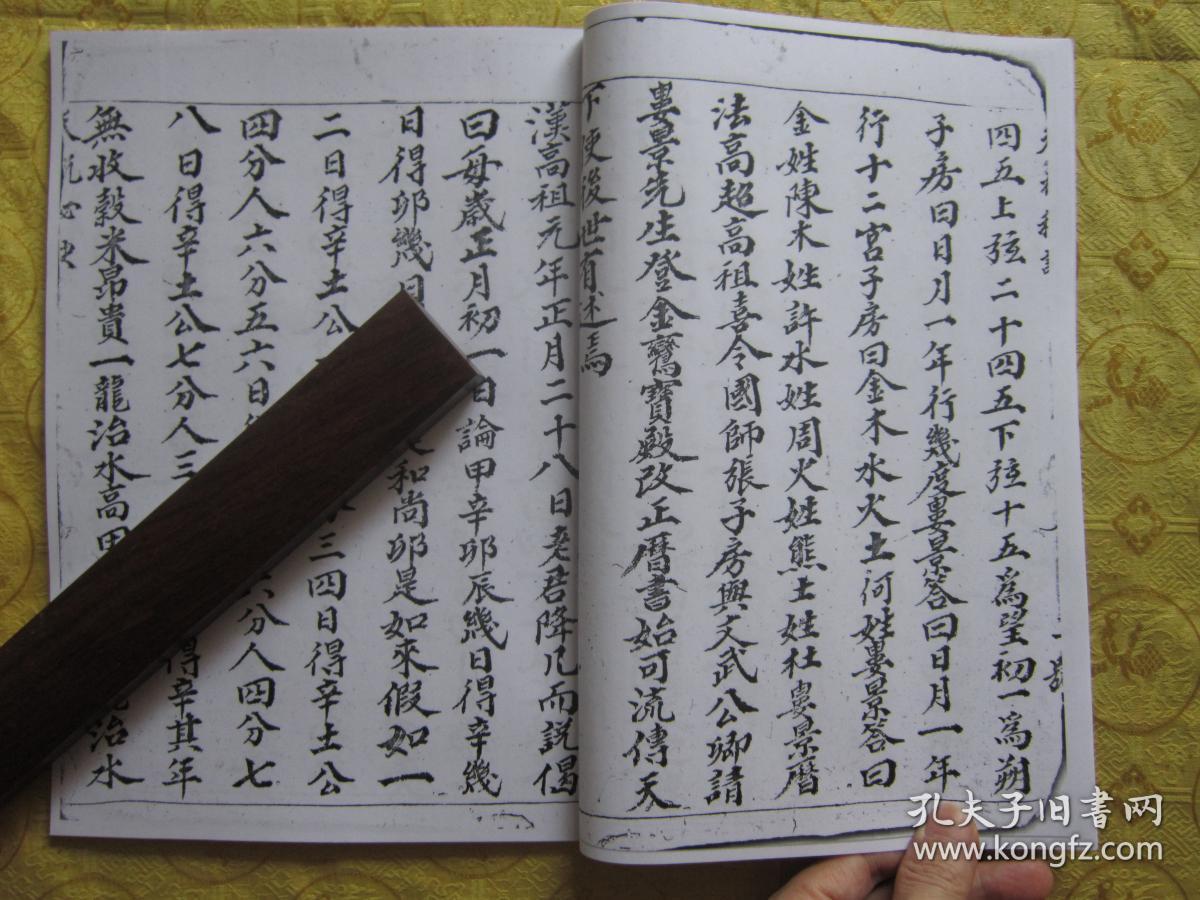 四五上弦二十四五下弦十五為望初一為朔
子房曰日月一年行幾度婁景答曰日月一年
行十二宮子房曰金木水火土何姓婁景答曰
金姓陳木姓許水姓周火姓熊土姓杜婁景曆
法高超高祖喜令國師張子房與文武公卿請
婁景先生登金鸞寶殿改正曆書始可流傳天
下使後世有述焉
漢高祖元年正月二十八日老君降凡而說偈
曰每歲正月初一日論甲辛卯辰幾日得辛幾
日得卯幾日 和尚卯是如來假如一
二日得辛土公 三四日得辛土公
四分人六分五六日 六分人四分七
八日得辛土公七分人三 得辛其年
無收穀米昂貴一龍治水高田 治水
孔夫子旧书网
www.kongfz.com